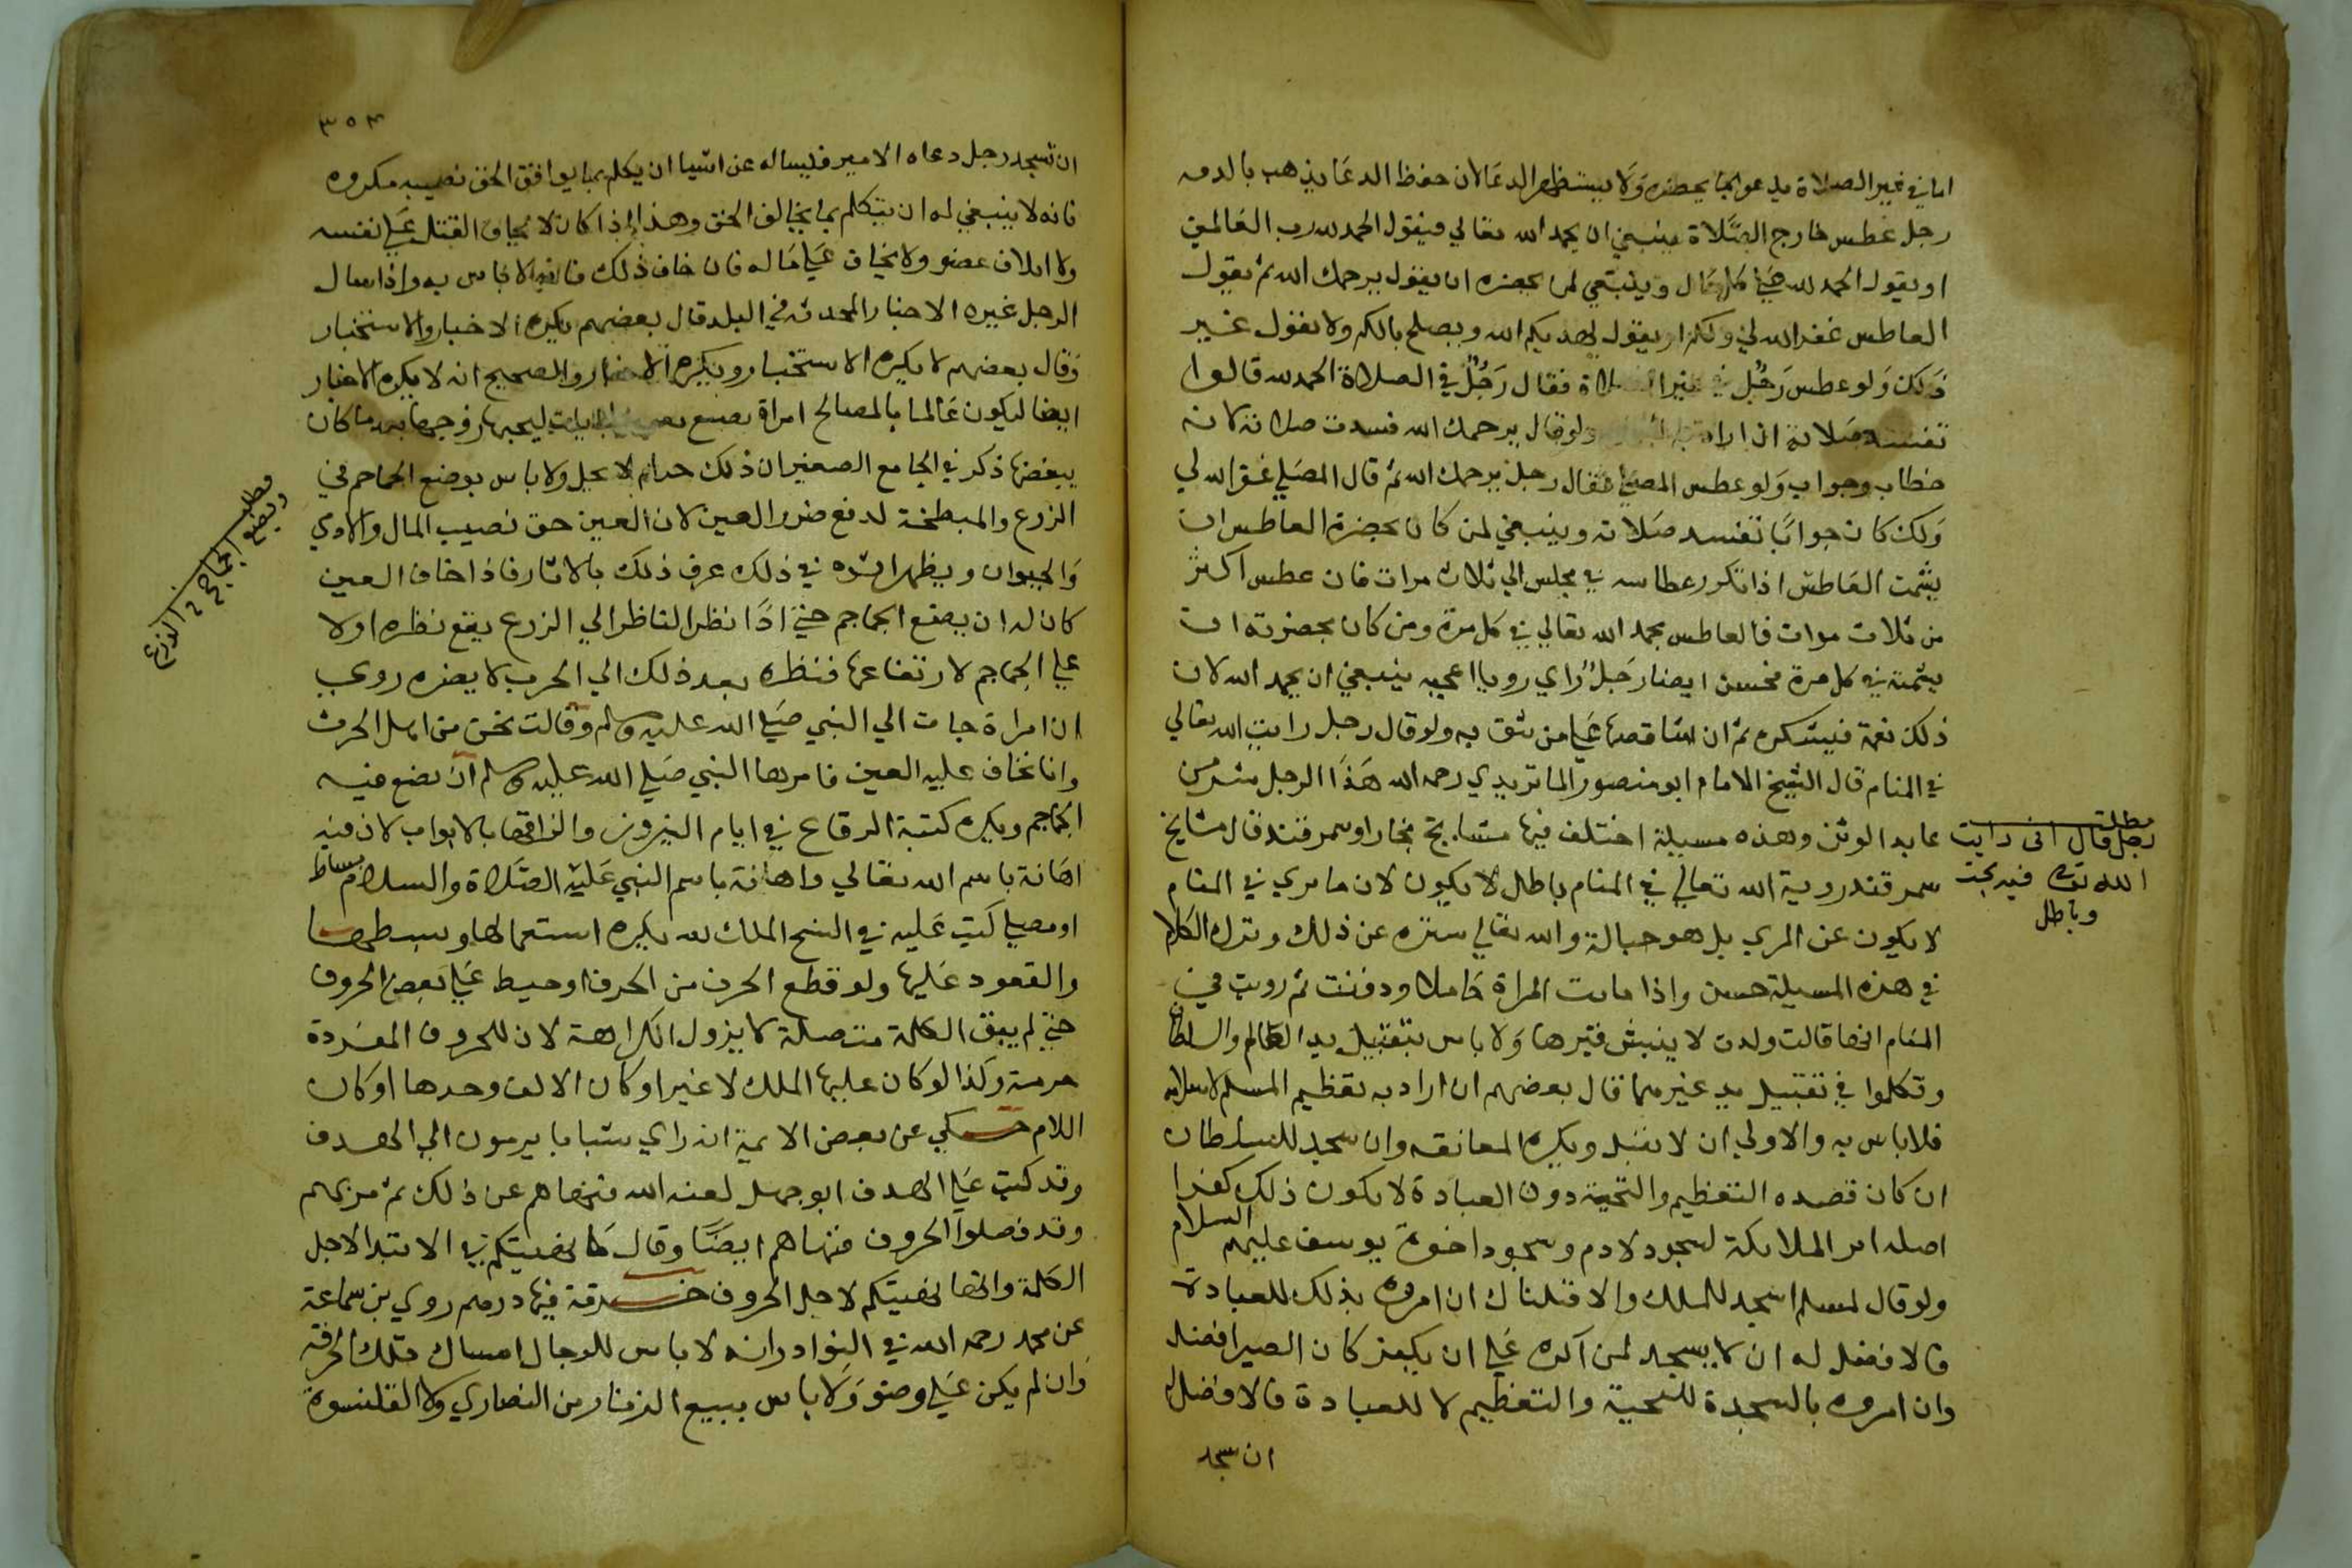 اما في غير الصلاة يدعو بما يحضره ولا يستظهر الدعا لان حفظ الدعا يذهب بالرقه
رجل عطس خارج الصلاة ينبغي ان يحمد الله تعالي فيقول الحمد لله رب العالمين
او يقول الحمد لله علي كل حال وينبغي لمن بحضره ان يقول يرحمك الله ثم يقول
العاطس غفر الله لي ولكم او يقول يهديكم الله ويصلح بالكم ولا يقول غير
ذلك ولو عطس رجل في غير الصلاة فقال رجل في الصلاة الحمد لله قالوا
تفسد صلاته ان اراد به ولو قال يرحمك الله فسدت صلاته لانه
خطاب وجواب ولو عطس المصلي فقال رجل يرحمك الله ثم قال المصلي غفر الله لي
ولك كان جوابا تفسد صلاته وينبغي لمن كان بحضرة العاطس ان
يشمت العاطس اذا تكرر عطاسه في مجلس الي ثلاث مرات فان عطس اكثر
من ثلاث مرات فالعاطس يحمد الله تعالي في كل مرة ومن كان بحضرته ان
يشمته في كل مرة فحسن ايضا رجل راي رويا اعجبه ينبغي ان يحمد الله لان
ذلك نعمة فيشكره ثم ان شا قصها علي من يثق به ولو قال رجل رايت الله تعالي
في المنام قال الشيخ الامام ابو منصور الماتريدي رحمه الله هذا الرجل شر من
عابد الوثن وهذه مسيلة اختلف فيها مشايخ بخارا وسمرقند قال مشايخ
سمرقند روية الله تعالي في المنام باطل لا يكون لان ما يري في المنام
لا يكون عن المري بل هو خيالة والله تعالي منزه عن ذلك وترك الكلام
في هذه المسيلة حسن واذا ماتت المراة حاملا ودفنت ثم رويت في
المنام انها قالت ولدت لا ينبش قبرها ولا باس بتقبيل يد العالم والسلطان
وتكلموا في تقبيل يد غيرهما قال بعضهم ان اراد به تعظيم المسلم لاسلامه
فلا باس به والاولي ان لا يقبل ويكره المعانقه وان سجد للسلطان
ان كان قصده التعظيم والتحية دون العبادة لا يكون ذلك كفرا
اصله امر الملايكة لسجود لادم وسجود اخوة يوسف عليهم السلام
ولو قال لمسلم اسجد للملك والا قتلناك ان امروه بذلك للعبادة
فالافضل له ان لا يسجد لمن اكره علي ان يكفر كان الصبر افضل
وان امروه بالسجدة للتحية والتعظيم لا للعبادة فالافضل له
ان سجد
مطلب
رجل قال اني رايت
الله تعالى فيه بحث
وباطل
٣٥٣
ان تسجد رجل دعاه الامير فيساله عن اشيا ان يكلم بما يوافق الحق نصيبه مكروه
فانه لا ينبغي له ان يتكلم بما يخالف الحق وهذا اذا كان لا يخاف القتل علي نفسه
ولا اتلاف عضو ولا يخاف علي ماله فان خاف ذلك فانه لا باس به واذا سال
الرجل غيره الاخبار المحدثه في البلد قال بعضهم يكره الاخبار والاستخبار
وقال بعضهم لا يكره الاستخبار ويكره الاخبار والصحيح انه لا يكره الاخبار
ايضا ليكون عالما بالمصالح امراة تصنع ليحبها زوجها بعد ما كان
يبغضها ذكر في الجامع الصغير ان ذلك حرام لا يحل ولا باس بوضع الجماجم في
الزرع والمبطخة لدفع ضرر العين لان العين حق تصيب المال والادمي
والحيوان ويظهر اثره في ذلك عرف ذلك بالاثار فاذا خاف العين
كان له ان يضع الجماجم حتي اذا نظر الناظر الي الزرع يقع نظره اولا
علي الجماجم لارتفاعها فنظره بعد ذلك الي الحرث لا يضره روي
ان امراة جات الي النبي صلي الله عليه وسلم وقالت نحن من اهل الحرث
وانا نخاف عليه العين فامرها النبي صلي الله عليه وسلم ان تضع فيه
الجماجم ويكره كتبة الرقاع في ايام النيروز والزاقها بالابواب لان فيه
اهانة باسم الله تعالي واهانة باسم النبي عليه الصلاة والسلام بساط
او مصلي كتب عليه في النسج الملك لله يكره استعمالها وبسطها
والقعود عليها ولو قطع الحرف من الحرف او خيط علي بعض الحروف
حتي لم يبق الكلمة متصلة لا يزول الكراهة لان للحروف المفردة
حرمة وكذا لو كان عليها الملك لا غير او كان الالف وحدها او كان
اللام حكي عن بعض الايمة انه راي شبابا يرمون الي الهدف
وقد كتب علي الهدف ابو جهل لعنه الله فنهاهم عن ذلك ثم مر بهم
وقد فصلوا الحروف فنهاهم ايضا وقال ما نهيتكم في الابتدا لاجل
الكلمة وانما نهيتكم لاجل الحروف خرقة فيها درهم روي بن سماعة
عن محمد رحمه الله في النوادر انه لا باس للرجال امساك تلك الخرقة
وان لم يكن علي وضو ولا باس ببيع الزنار من النصاري ولا القلنسوة
مطلب
وتضع الجماجم في الزرع